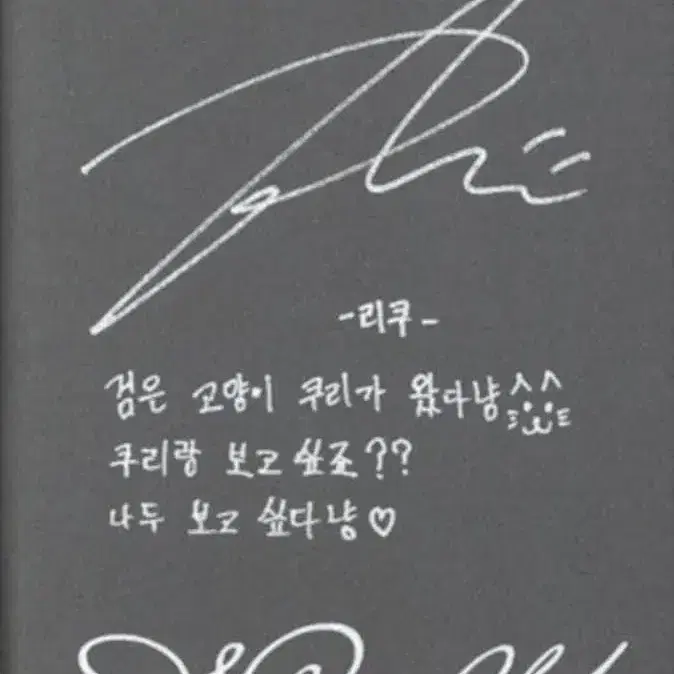 -리쿠-
검은 고양이 쿠리가 왔다냥
쿠리랑 보고싶죠??
나두 보고 싶다냥♡